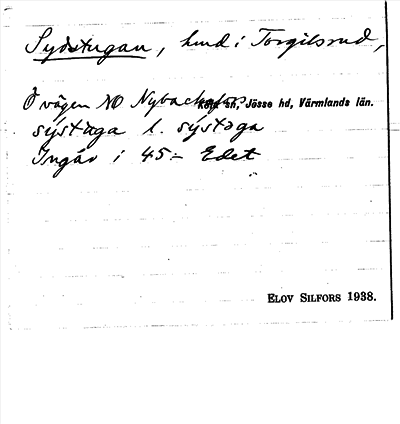 Sydstugan, hmd i Torgilsrud,
Ö vägen NO Nybackatorp
Köla sn, Jösse hd, Värmlands län.
sýstuga l. sýstoga
Ingår i 45:- Edet
ELOV SILFORS 1938.